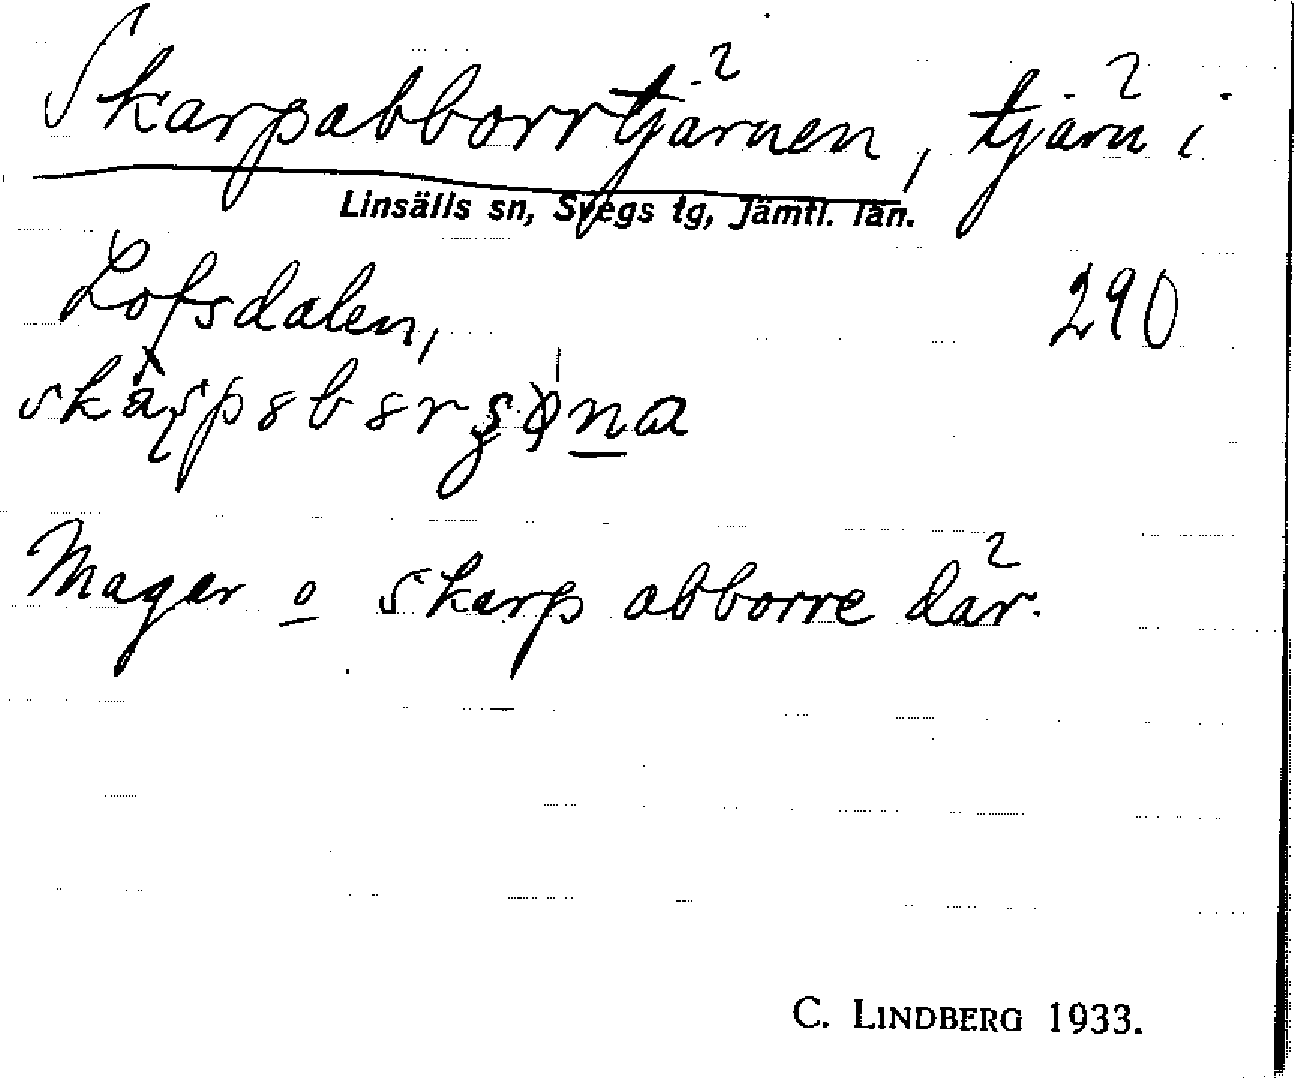 Skarpabborrtjärnen, tjärn i
Linsälls sn, Svegs tg, Jämtl. län.
Lofsdalen,
290
Mager o skarp abborre där.
C. LINDBERG 1933.